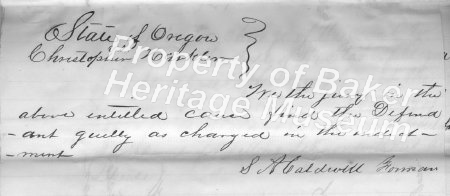 State of Oregon
Christopher
We the jury in the
above entitled cause find the Defend
-ant guilty as charged in the indict-
-ment
S A Caldwell Forman
Property of Baker
Heritage Museum